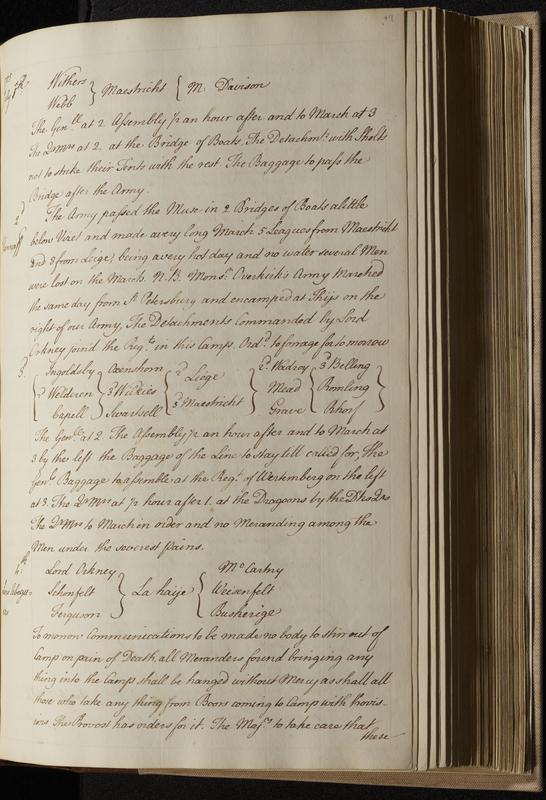 Withers } Maestricht { M. Davison
Webb
The Gen.ll at 2 Assembly ½ an hour after and to March at 3
The QrMrs at 2. at the Bridge of Boats, The Detachm.t with Sholts
not to strike their Tents with the rest. The Baggage to pass the
Bridge after the Army.
2d The Army passed the Muse in 2 Bridges of Boats alittle
below Viset and made avery long March 5 Leagues from Maestricht
and 3 from Leige; being avery hot day and no water several Men
were lost on the March. N.B. Mons.r Overkirk's Army Marched
the same day from St Petersburg and encamped at Thijs on the
right of our Army, The Detachments Commanded by Lord
Orkney joind the Reg.ts in this Camp. Ord.d to forrage for to morrow
3d Ingoldsby Oxenshorn 2d Liege 2d Wadroy 3d Belling
2d Welderen 3d Wilkies Mead Romling
Capell Swartsell 3d Maestricht Grave Rhors
The Gen.ll at 2. The Assembly ½ an hour after and to March at
3 by the left the Baggage of the Line to stay till called for, The
Gen.ls Baggage to assemble at the Reg.t of Wertemberg on the left
at 3. The QrMrs at ½ hour after 1. at the Dragoons by the
The QrMrs to March in order and no Meranding among the
Men under the severest pains.
4th Lord Orkney } La haije { Mc Cartny
Schonfelt Weisenfelt
Ferguson Busherige
To morrow Communications to be made no body to stir out of
Camp on pain of Death, all Meranders found bringing any
thing into the Camp shall be hanged without Mercy as shall all
those who take any thing from Boors coming to Camp with Provis-
ions The Provost has orders for it. The Maj.rs to take care that
there